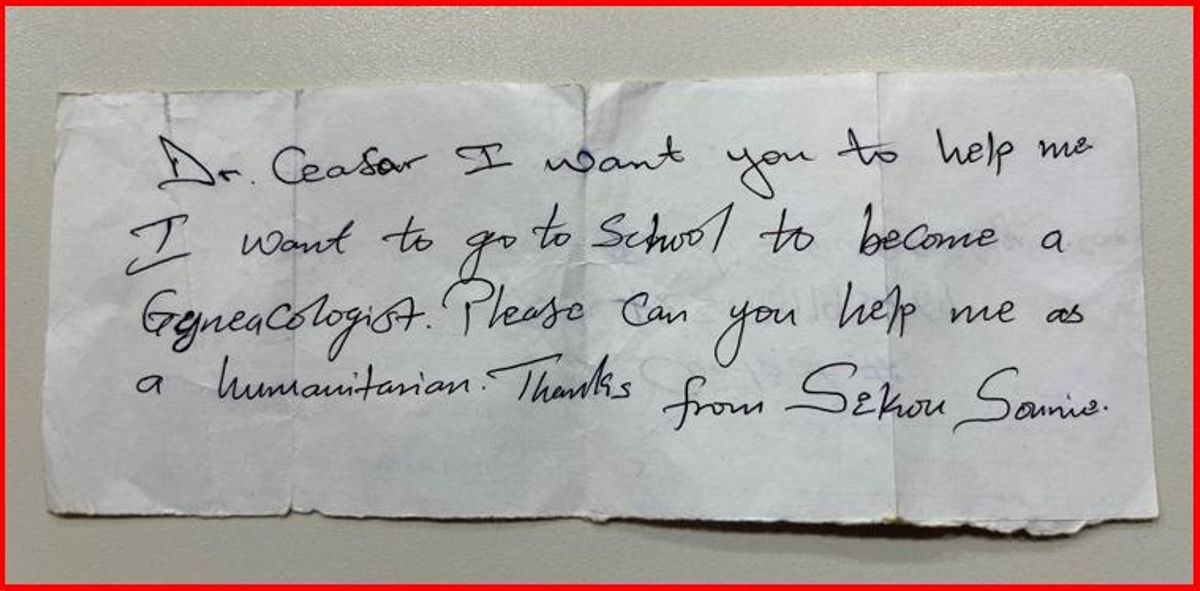 Dr. Ceasar I want you to help me
I want to go to School to become a
Gyneacologist. Please Can you help me as
a humanitarian. Thanks from Sekou